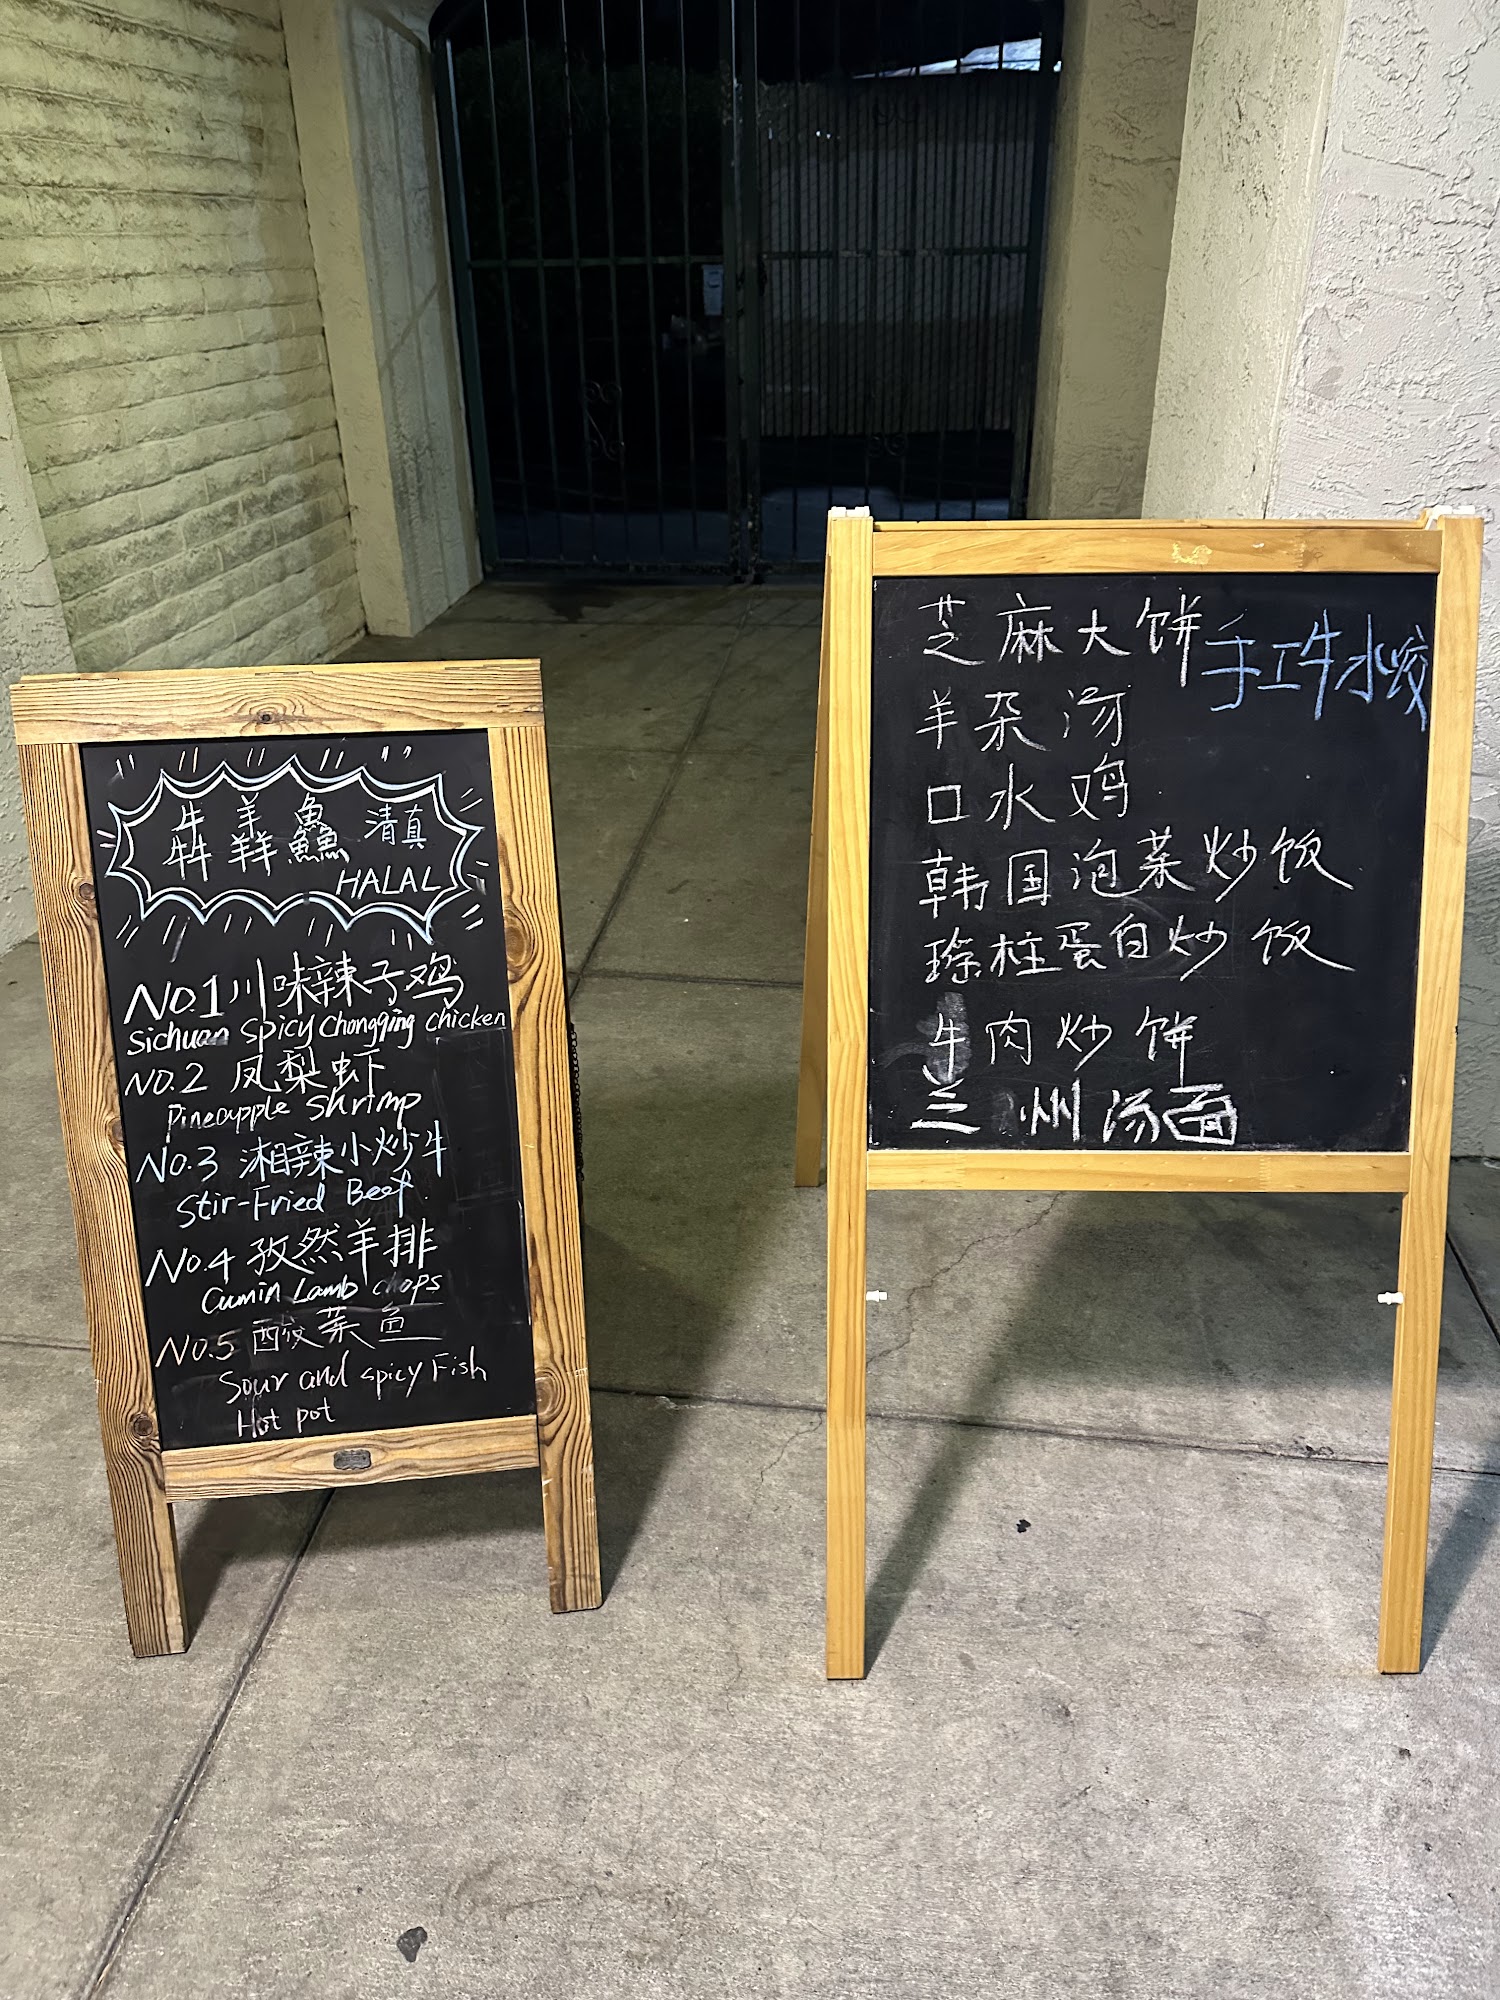 犇羴鱻 清真
HALAL
NO.1 川味辣子鸡
Sichuan Spicy Chongqing chicken
NO.2 凤梨虾
Pineapple Shrimp
NO.3 湘辣小炒牛
Stir-Fried Beef
NO.4 孜然羊排
Cumin Lamb chops
NO.5 酸菜鱼
Sour and spicy Fish
Hot pot
芝麻大饼
手工牛水饺
羊杂汤
口水鸡
韩国泡菜炒饭
瑶柱蛋白炒饭
牛肉炒饼
兰州汤面